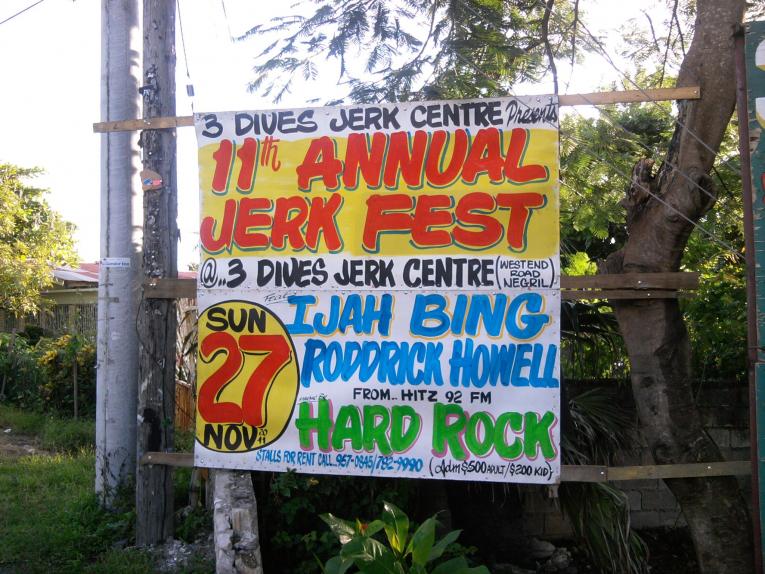 3 DIVES JERK CENTRE Presents
11th ANNUAL
JERK FEST
@..3 DIVES JERK CENTRE (WESTEND ROAD NEGRIL)
IJAH BING
RODDRICK HOWELL
FROM.. HITZ 92 FM
HARD ROCK
SUN
27
NOV 2011
STALLS FOR RENT CALL..957-0845/782-9990 (Adm $500 ADULT/$200 KID)